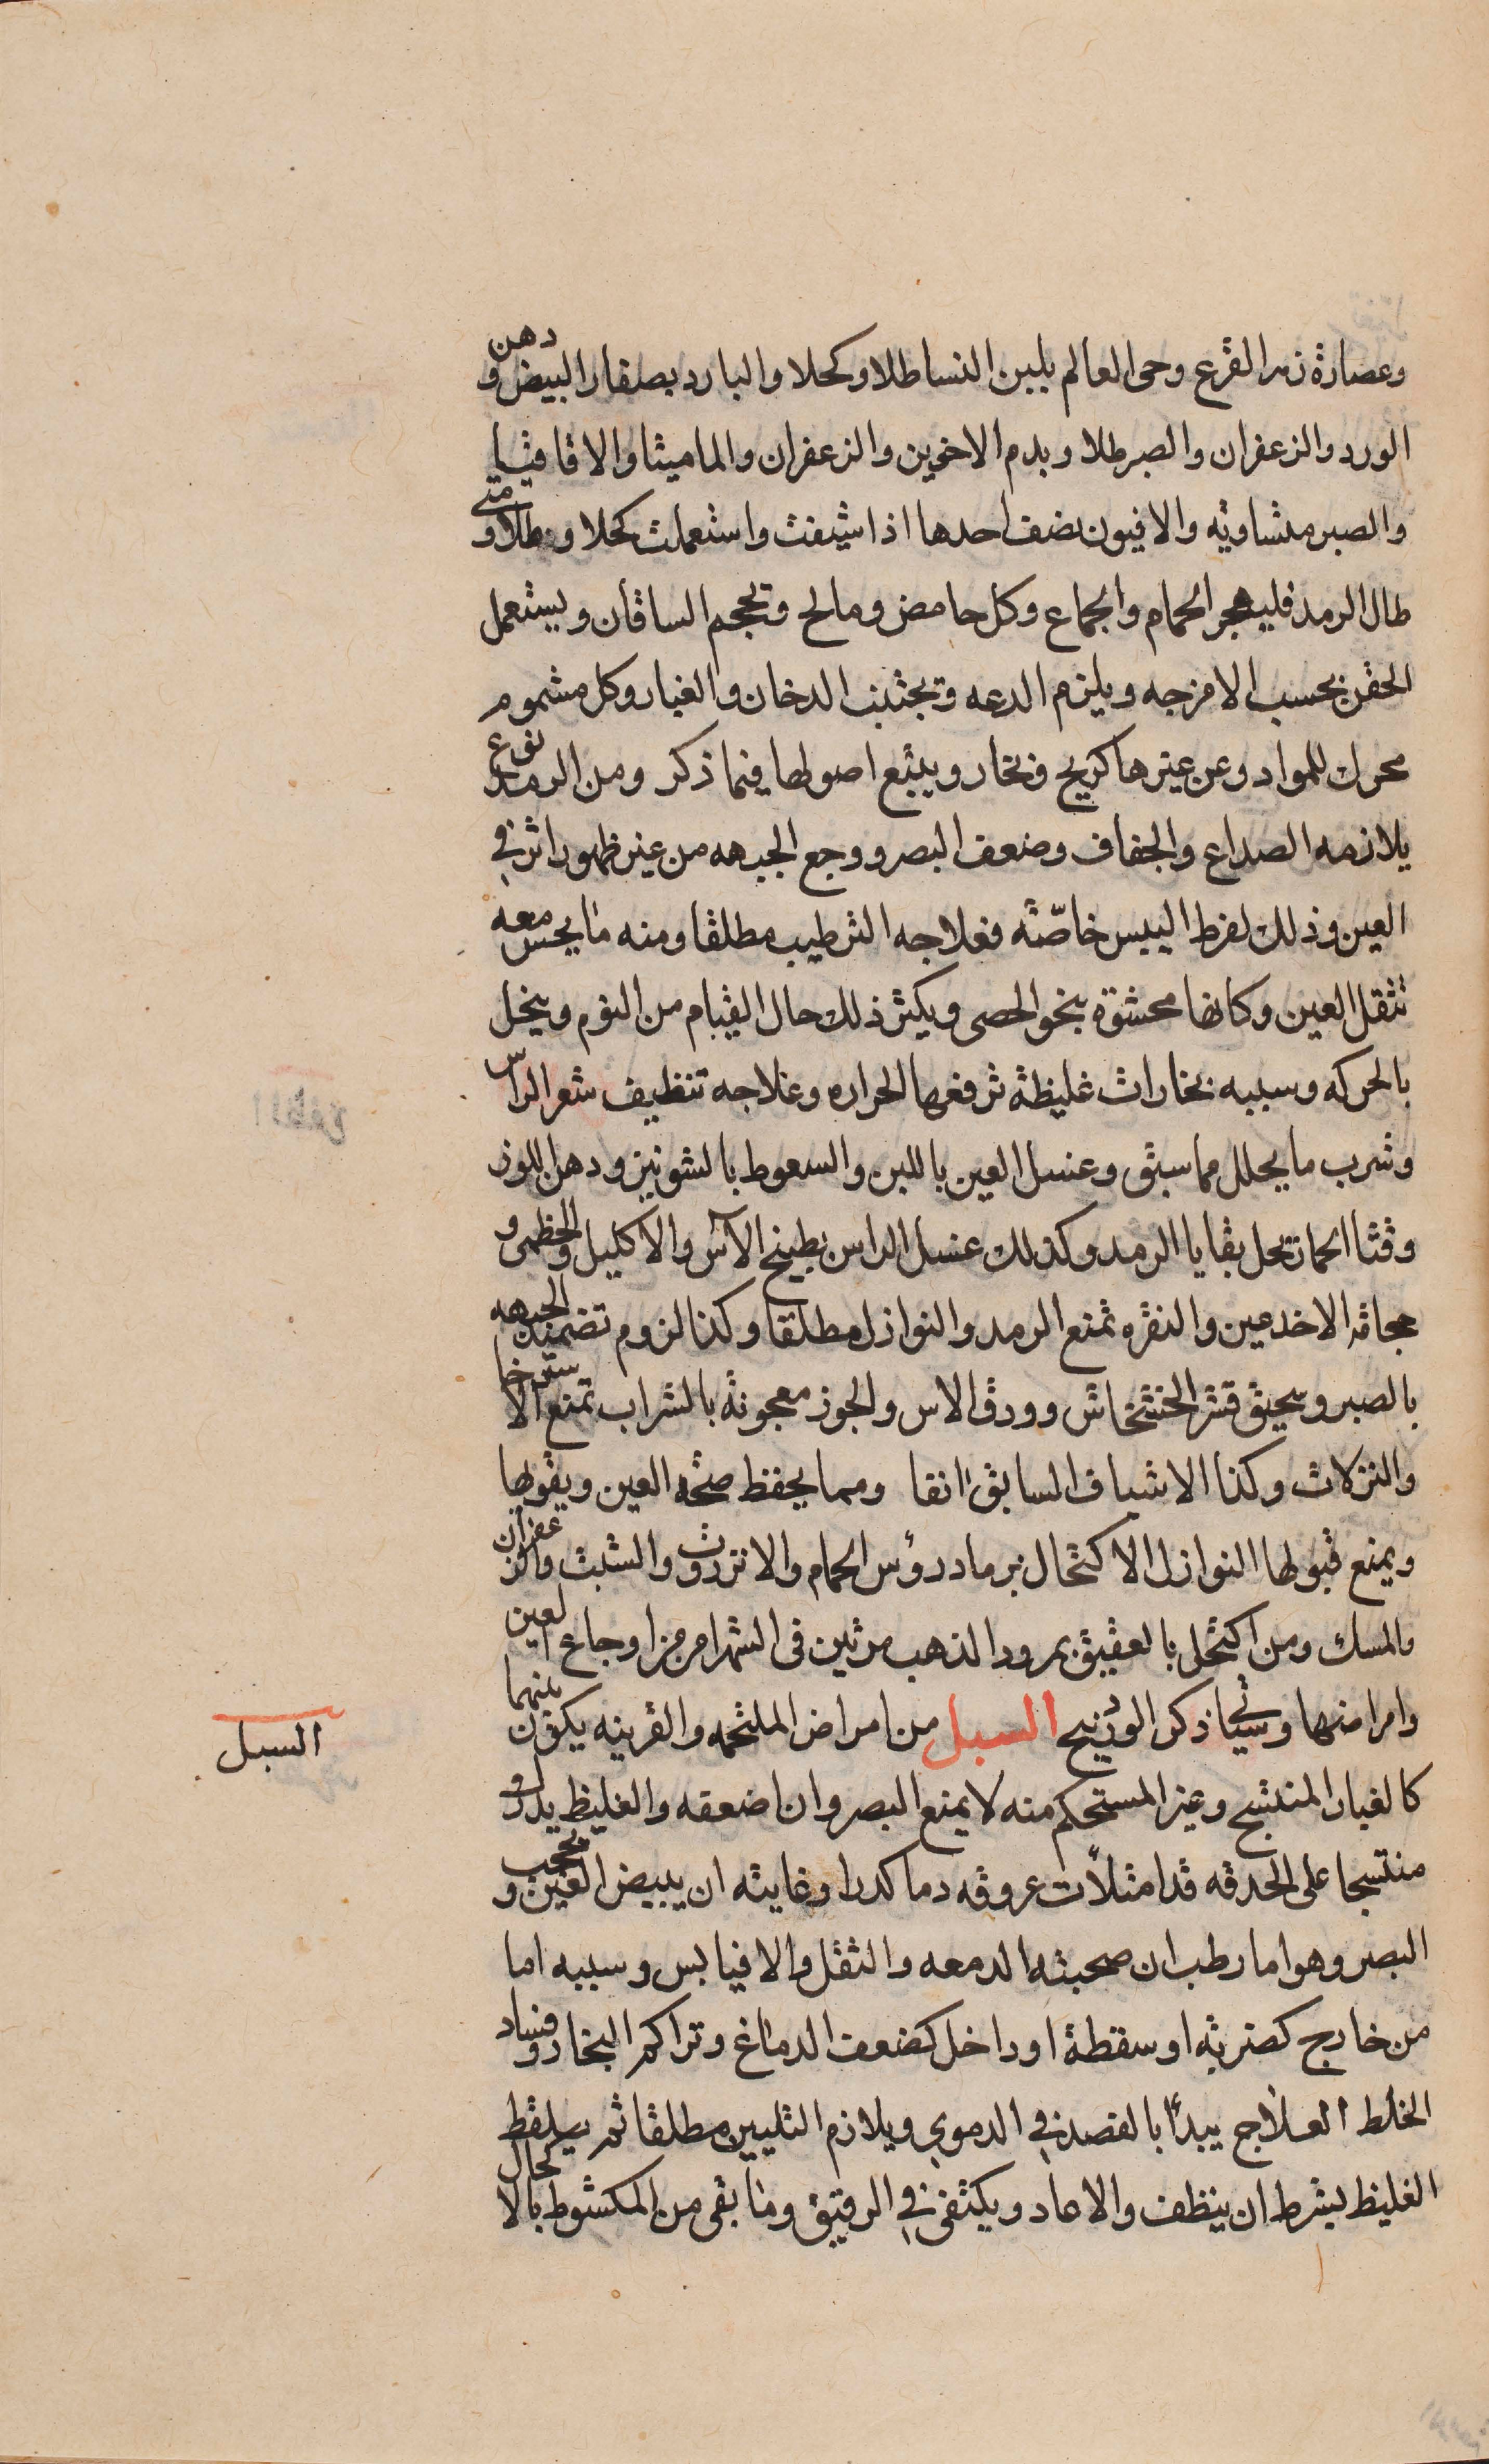 وعصارة زهر القرع وحى العالم بلبن النسا طلا وكحلا والبارد بصفار البيض ودهن
الورد والزعفران والصبر طلا وبدم الاخوين والزعفران والماميثا والاقاقيا
والصبر متساويه والافيون نصف احدها اذا شيفت واستعملت كحلا وطلا ومتى
طال الرمد فليهجر الحمام والجماع وكل حامض ومالح وتحجم الساقان ويستعمل
الحقن بحسب الامزجه ويلزم الدعه وتجتنب الدخان والغبار وكل مشموم
محرك للمواد وعن غيرها كريح وبخار ويتبع اصولها فيما ذكر ومن الرمد نوع
يلازمه الصداع والجفاف وضعف البصر ووجع الجبهه من غير ظهور اثر في
العين وذلك لفرط اليبس خاصّته فعلاجه الترطيب مطلقا ومنه ما يحس معه
تثقل العين وكانها محشوة بنحو الحصى ويكثر ذلك حال القيام من النوم وينحل
بالحركه وسببه بخارات غليظة ترفعها الحراره وعلاجه تنظيف شعر الراس
وشرب ما يحلل مما سبق وغسل العين باللبن والسعوط بالشونيز ودهن اللوز
وقثا الحمار تحل بقايا الرمد وكذلك غسل الراس بطبيخ الآس والاكليل والخطمى و
حجامة الاخدعين والنقره تمنع الرمد والنوازل مطلقا وكذا لزوم تضميد الجبهه
بالصبر وسحيق قشر الخشخاش وورق الاس والجوز معجونة بالشراب تمنع الاسترخا
والنزلات وكذا الاشياف السابق انفا ومما يحفظ صحّه العين ويقويها
ويمنع قبولها النوازل الاكتحال برماد رؤس الحمام والانزروت والشبت والزعفران
والمسك ومن اكتحل بالعقيق بمرود الذهب مرتين فى الشهر امن من اوجاع العين
وامراضها وسياتي ذكر الوردنيج السبل من امراض الملتحمه والقرنيه يكون بينهما
كالغبار المنتسج وغير المستحكم منه لا يمنع البصر وان اضعفه والغليظ يدرو
منتسجا على الحدقه قد امتلأت عروقه دما كدرا وغايته ان يبيض العين ويحجب
البصر وهو اما رطب ان صحبته الدمعه والثقل والا فيابس وسببه اما
من خارج كضربه او سقطة او داخل كضعف الدماغ وتراكم البخار وفساد
الخلط العلاج يبدأ بالفصد في الدموي ويلازم التليين مطلقا ثم يلقط
الغليظ بشرط ان ينظف والا عاد ويكتفى في الرقيق وما بقى من المكشوط بالاكحال
السبل